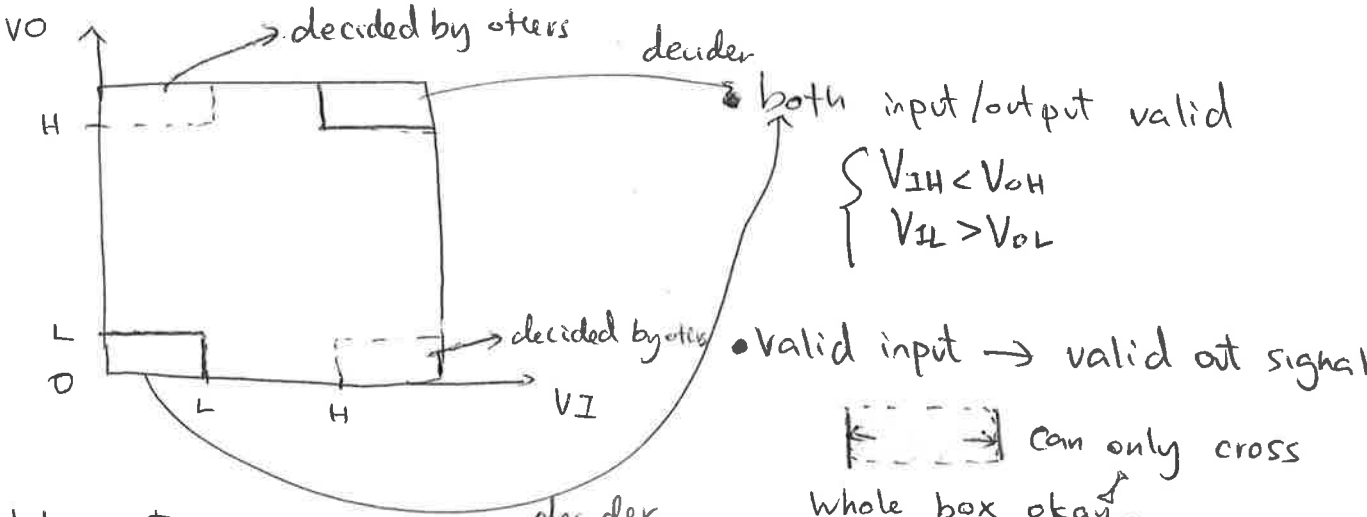 VO
decided by others
decider
H
• both input/output valid
V_IH < V_OH
V_IL > V_OL
L
decided by
• valid input → valid out signal
O
L
H
VI
can only cross
whole box okay